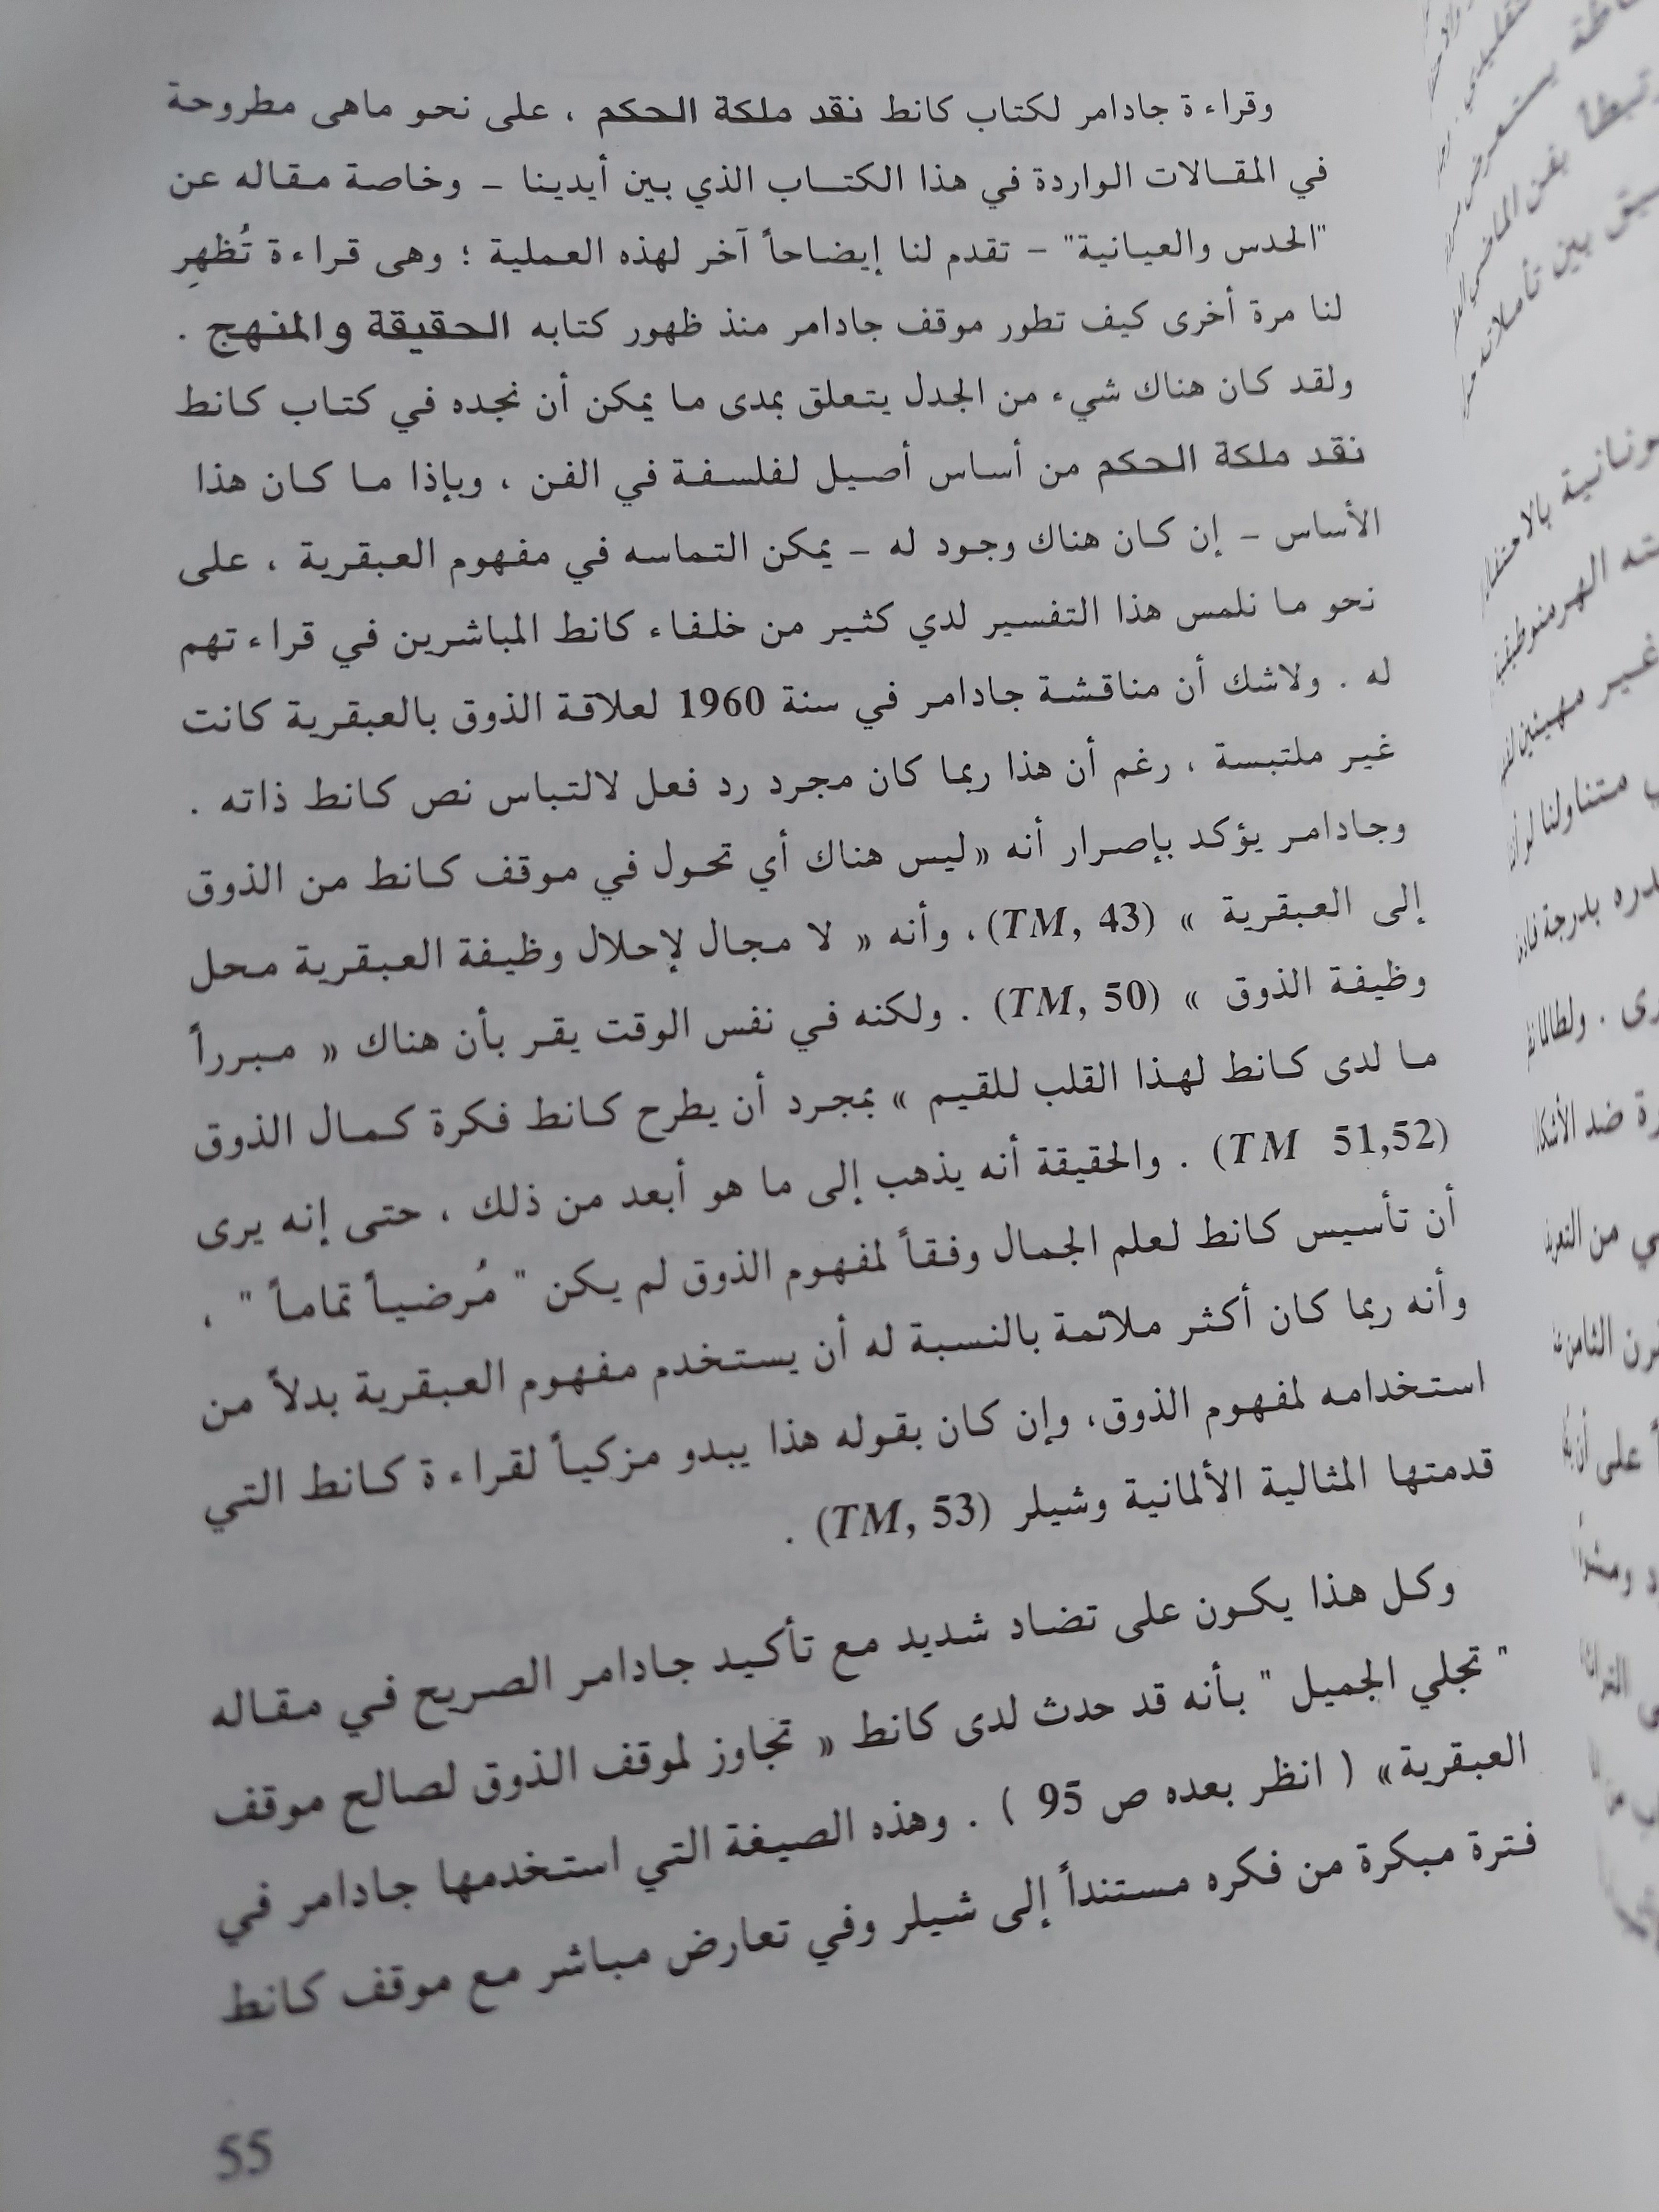 وقراءة جادامر لكتاب كانط نقد ملكة الحكم ، على نحو ماهى مطروحة
في المقالات الواردة في هذا الكتاب الذي بين أيدينا – وخاصة مقاله عن
"الحدس والعيانية" – تقدم لنا إيضاحاً آخر لهذه العملية ؛ وهى قراءة تُظهِر
لنا مرة أخرى كيف تطور موقف جادامر منذ ظهور كتابه الحقيقة والمنهج .
ولقد كان هناك شيء من الجدل يتعلق بمدى ما يمكن أن نجده في كتاب كانط
نقد ملكة الحكم من أساس أصيل لفلسفة في الفن ، وبإذا ما كان هذا
الأساس – إن كان هناك وجود له – يمكن التماسه في مفهوم العبقرية ، على
نحو ما نلمس هذا التفسير لدي كثير من خلفاء كانط المباشرين في قراءتهم
له . ولاشك أن مناقشة جادامر في سنة 1960 لعلاقة الذوق بالعبقرية كانت
غير ملتبسة ، رغم أن هذا ربما كان مجرد رد فعل لالتباس نص كانط ذاته .
وجادامر يؤكد بإصرار أنه «ليس هناك أي تحول في موقف كانط من الذوق
إلى العبقرية » (TM, 43)، وأنه « لا مجال لإحلال وظيفة العبقرية محل
وظيفة الذوق » (TM, 50) . ولكنه في نفس الوقت يقر بأن هناك « مبرراً
ما لدى كانط لهذا القلب للقيم » بمجرد أن يطرح كانط فكرة كمال الذوق
(TM 51,52) . والحقيقة أنه يذهب إلى ما هو أبعد من ذلك ، حتى إنه يرى
أن تأسيس كانط لعلم الجمال وفقاً لمفهوم الذوق لم يكن " مُرضياً تماماً " ،
وأنه ربما كان أكثر ملائمة بالنسبة له أن يستخدم مفهوم العبقرية بدلاً من
استخدامه لمفهوم الذوق، وإن كان بقوله هذا يبدو مزكياً لقراءة كانط التي
قدمتها المثالية الألمانية وشيلر (TM, 53) .
وكل هذا يكون على تضاد شديد مع تأكيد جادامر الصريح في مقاله
" تجلي الجميل " بأنه قد حدث لدى كانط « تجاوز لموقف الذوق لصالح موقف
العبقرية» ( انظر بعده ص 95 ) . وهذه الصيغة التي استخدمها جادامر في
فترة مبكرة من فكره مستنداً إلى شيلر وفي تعارض مباشر مع موقف كانط
55